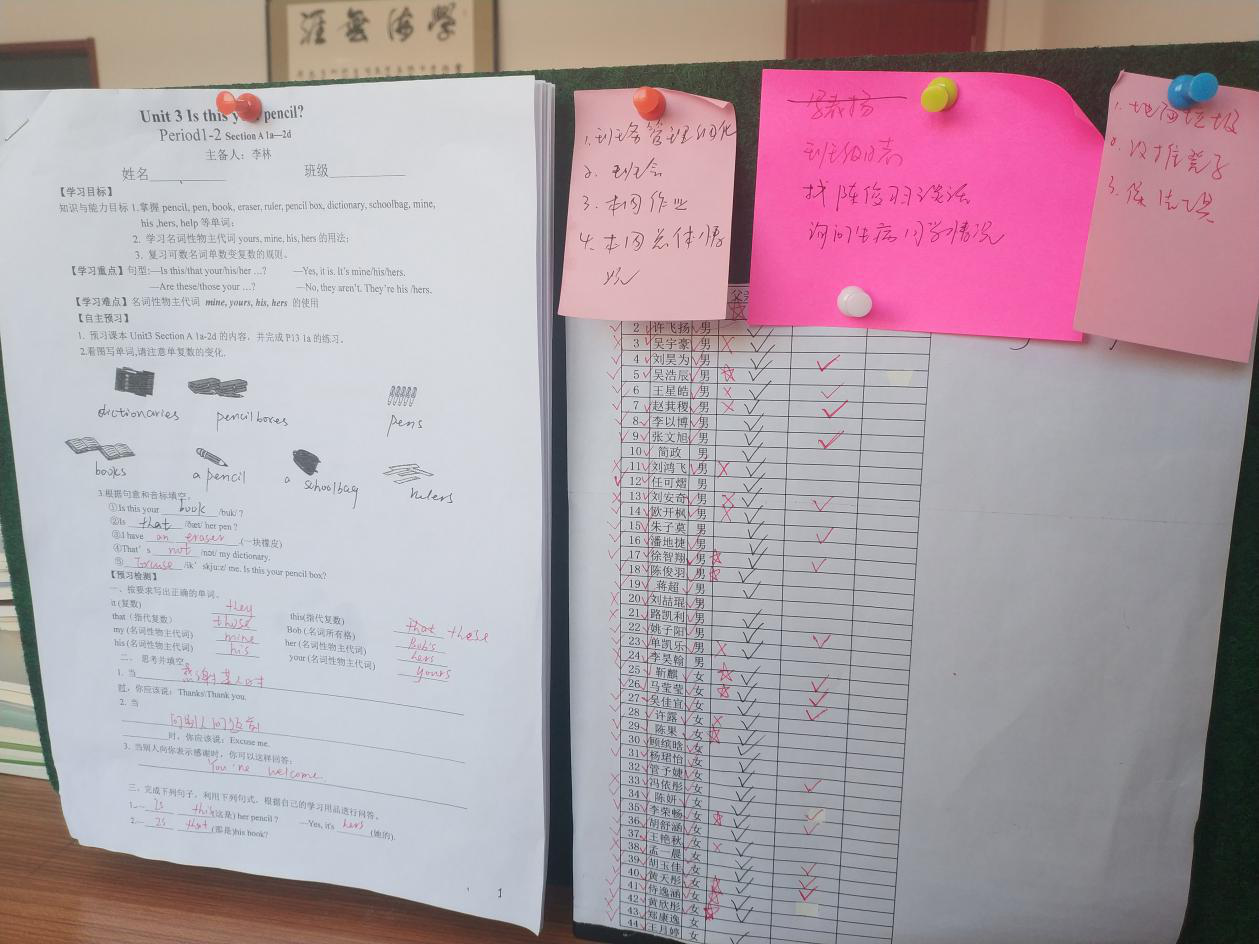 學海無涯
Unit 3 Is this your pencil?
Period1-2 Section A 1a—2d
主备人：李林
姓名 班级
【学习目标】
知识与能力目标 1.掌握 pencil, pen, book, eraser, ruler, pencil box, dictionary, schoolbag, mine,
his ,hers, help 等单词；
2. 学习名词性物主代词 yours, mine, his, hers 的用法；
3. 复习可数名词单数变复数的规则。
【学习重点】句型:—Is this/that your/his/her …? —Yes, it is. It's mine/his/hers.
—Are these/those your …? —No, they aren't. They're his /hers.
【学习难点】名词性物主代词 mine, yours, his, hers 的使用
【自主预习】
1. 预习课本 Unit3 Section A 1a-2d 的内容，并完成 P13 1a 的练习。
2.看图写单词,请注意单复数的变化.
dictionaries pencil boxes pens
books a pencil a schoolbag rulers
3.根据句意和音标填空。
①Is this your book /buk/ ?
②Is that /ðæt/ her pen ?
③I have an eraser .(一块橡皮)
④That's not /nɒt/ my dictionary.
⑤ Excuse /ik'skju:z/ me. Is this your pencil box?
【预习检测】
一、按要求写出正确的单词。
it (复数) they this(指代复数) that these
that（指代复数） those Bob (名词所有格) Bob's
my (名词性物主代词) mine her (名词性物主代词) hers
his (名词性物主代词) his your (名词性物主代词) yours
二、 思考并填空
1. 当 感谢某人时
时，你应该说：Thanks\Thank you.
2. 当
向别人问路前
时，你应该说：Excuse me.
3. 当别人向你表示感谢时，你可以这样回答：
You're welcome.
三、完成下列句子，利用下列句式，根据自己的学习用品进行问答。
1.— Is this (这是) her pencil ? —Yes, it's hers (她的).
2.— Is that (那是)his book?
1
1.班务管理细化
2. 班会
3. 本周作业
4. 本周总体情
况
班级日志
找陈俊羽谈话
询问生病同学情况
1. 地面垃圾
2. 没推凳子
3.
2 许飞扬 男
3 吴宇豪 男
4 刘昊为 男
5 吴浩辰 男
6 王星皓 男
7 赵萁稷 男
8 李以博 男
9 张文旭 男
10 简政 男
11 刘鸿飞 男
12 任可熠 男
13 刘安奇 男
14 欧开枫 男
15 朱子莫 男
16 潘地捷 男
17 徐智翔 男
18 陈俊羽 男
19 蒋超 男
20 刘喆琨 男
21 路凯利 男
22 姚子阳 男
23 单凯乐 男
24 李昊翰 男
25 靳麒 女
26 马莹莹 女
27 吴佳宜 女
28 许露 女
29 陈果 女
30 顾缤晗 女
31 杨珺怡 女
32 管予婕 女
33 冯依彤 女
34 陈妍 女
35 李荣畅 女
36 胡舒涵 女
37 王艳秋 女
38 孟一晨 女
39 胡玉佳 女
40 黄天彤 女
41 侍逸涵 女
42 黄欣彤 女
43 郑康逸 女
44 王月婷 女